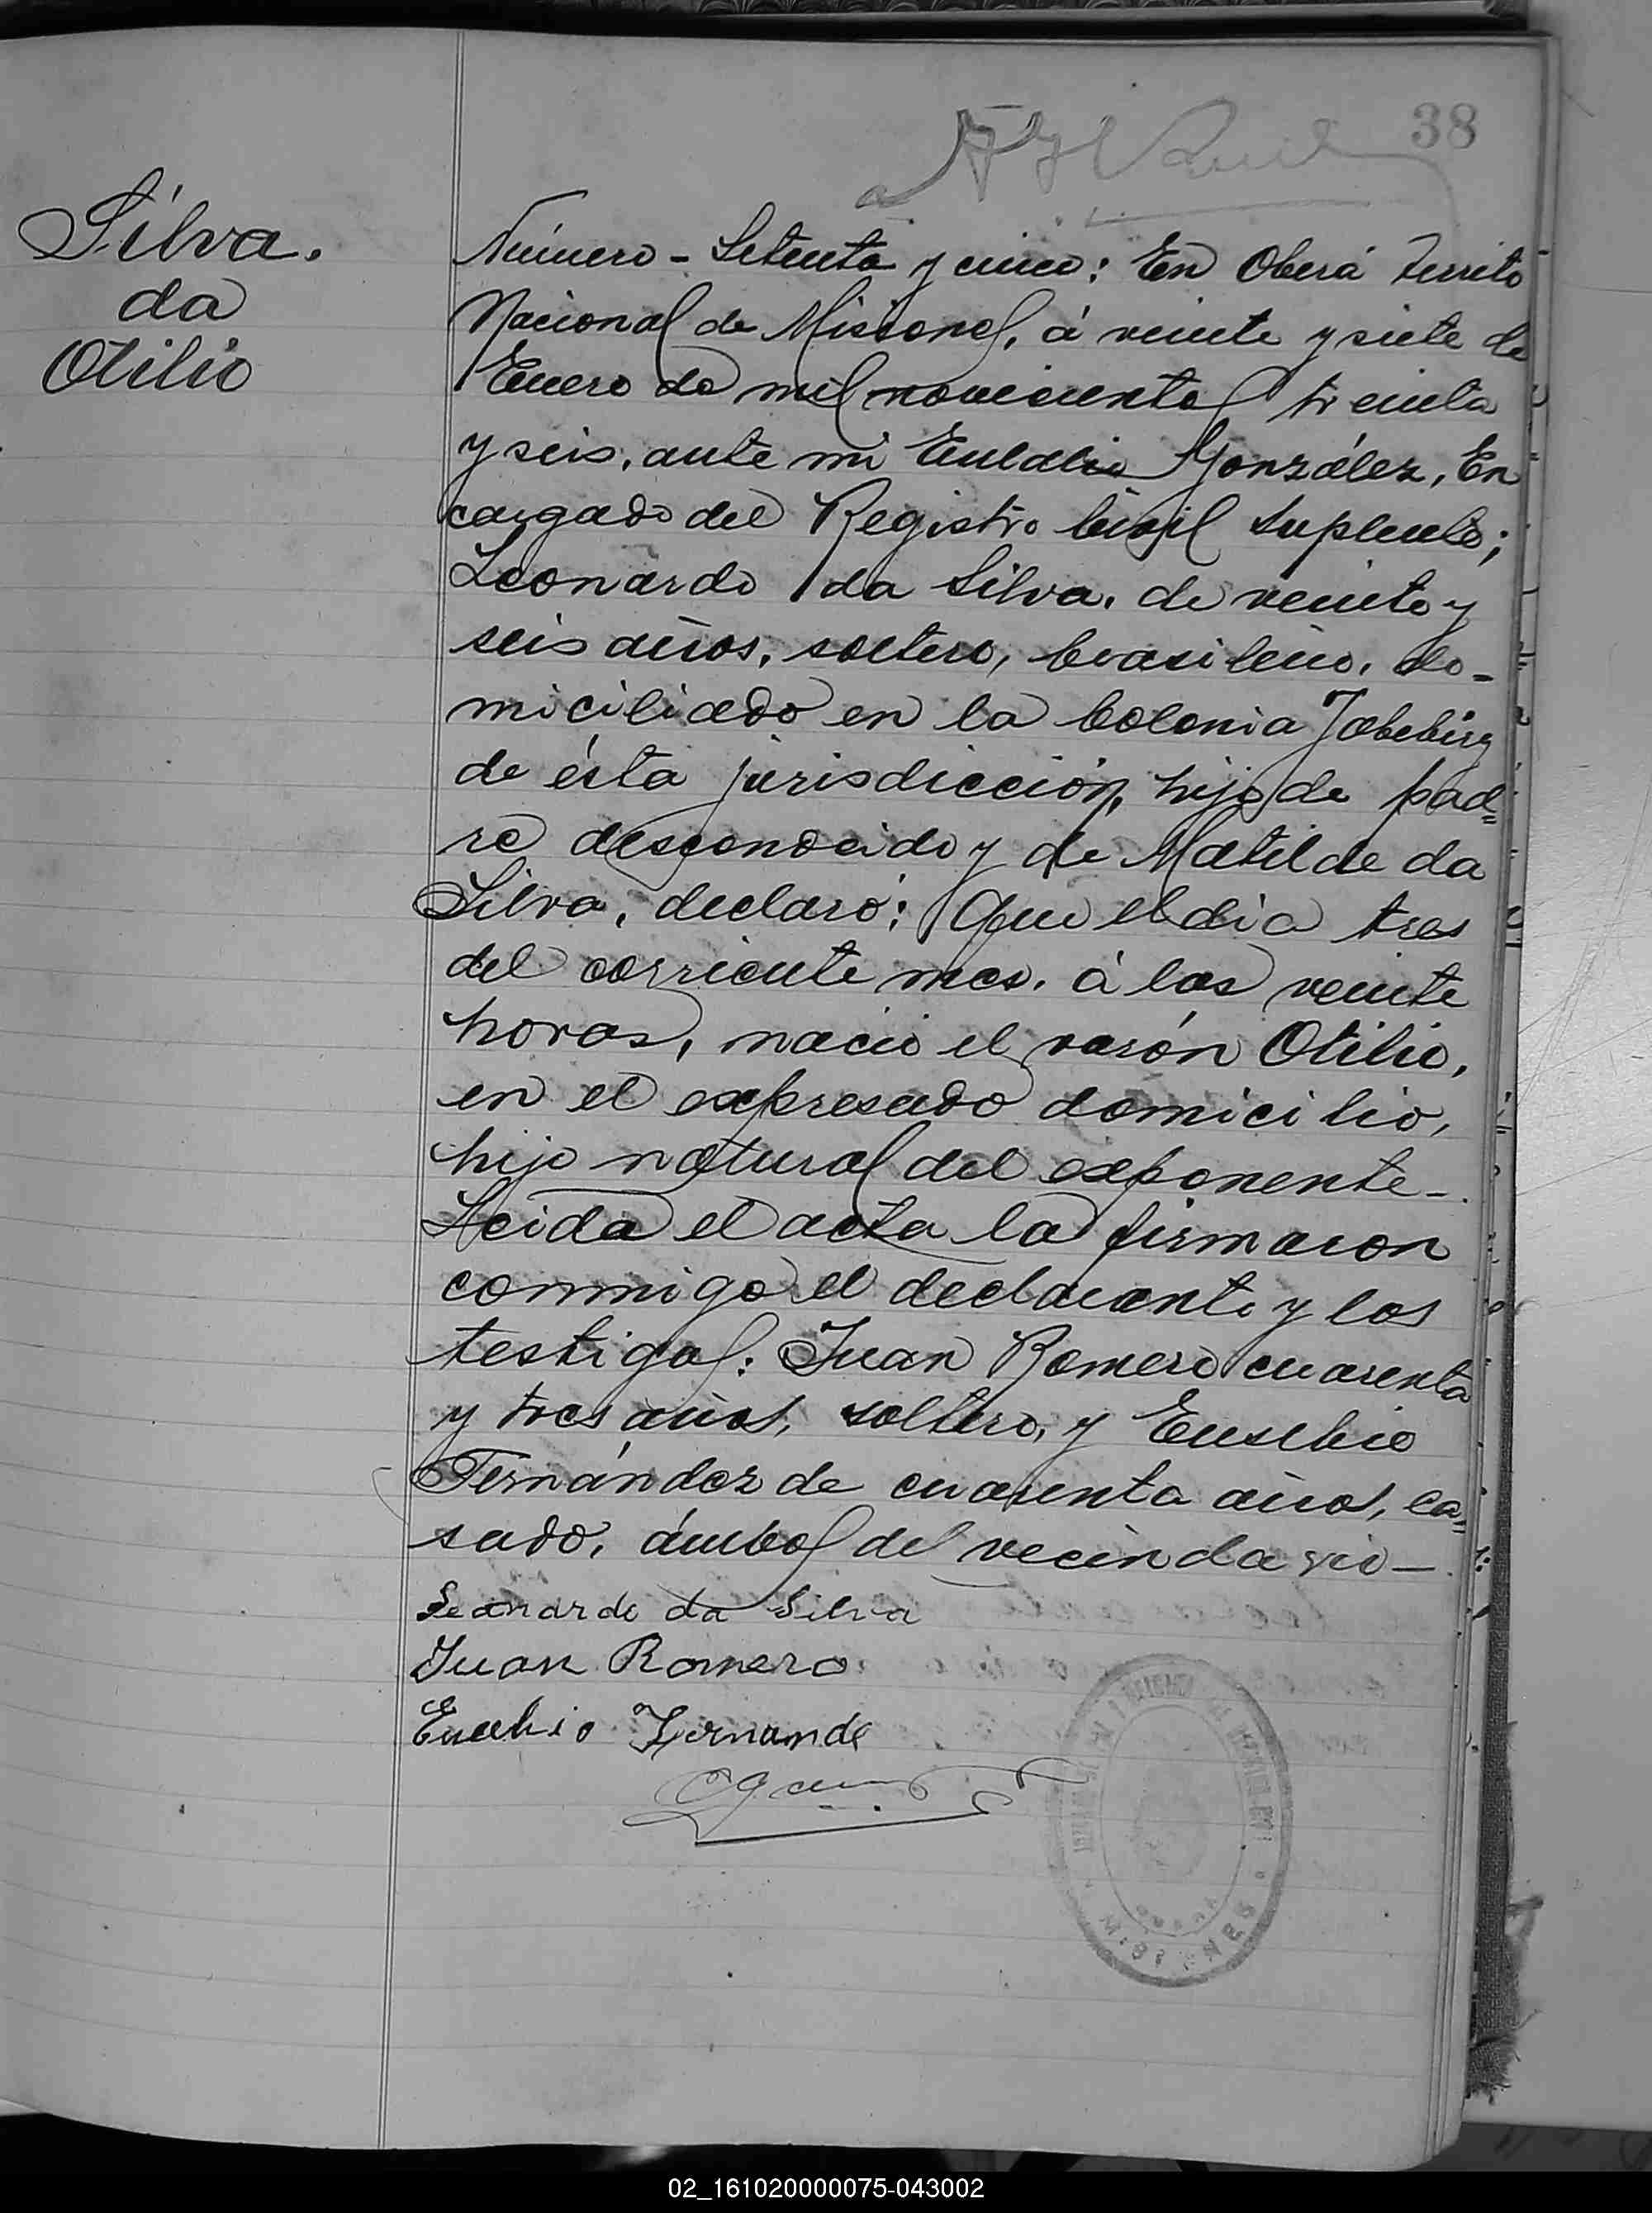 38
Silva.
da
Otilio
Número - Setenta y cinco: En Oberá Territo
Nacional de Misiones, á veinte y siete de
Enero de mil novecientos treinta
y seis, ante mi Eulalio González, En
cargado del Registro Civil Suplente;
Leonardo da Silva, de veinte y
seis años, soltero, brasileño, do-
miciliado en la Colonia Yabebiry
de ésta jurisdicción, hijo de pad=
re desconocido y de Matilde da
Silva, declaró: Que el dia tres
del corriente mes, á las veinte
horas, nació el varón Otilio,
en el expresado domicilio,
hijo natural del exponente -
Leida el acta la firmaron
conmigo el declarante y los
testigos: Juan Romero cuarenta
y tres años, soltero, y Eusebio
Fernández de cuarenta años, ca=
sado, ámbos del vecindario -
Leonardo da Silva
Juan Romero
Eusebio Fernande
02_161020000075-043002